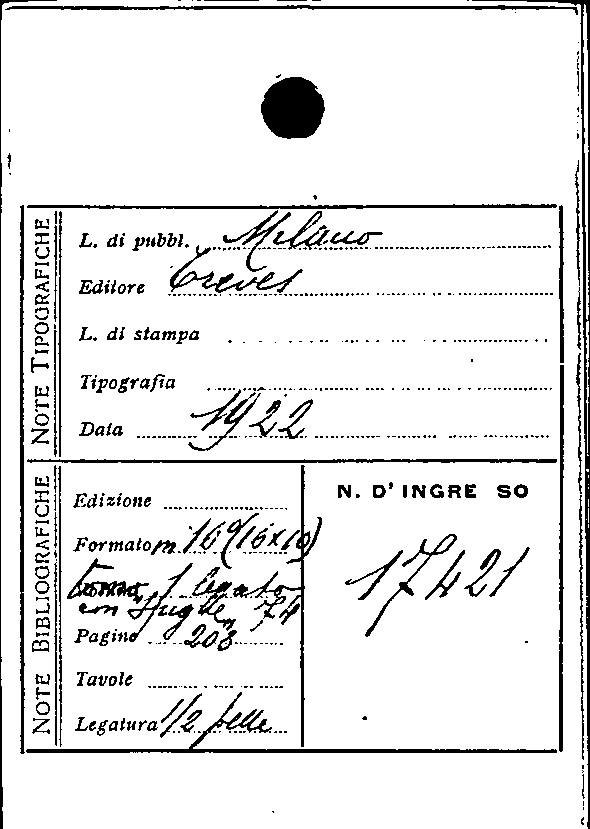 NOTE TIPOGRAFICHE
L. di pubbl. Milano
Editore Treves
L. di stampa
Tipografia
Data 1922
NOTE BIBLIOGRAFICHE
Edizione
Formato in 16º (16x10)
Tomo 1 legato
con Pugle n 74
Pagine 208
Tavole
Legatura 1/2 pelle
N. D' INGRE SO
17421